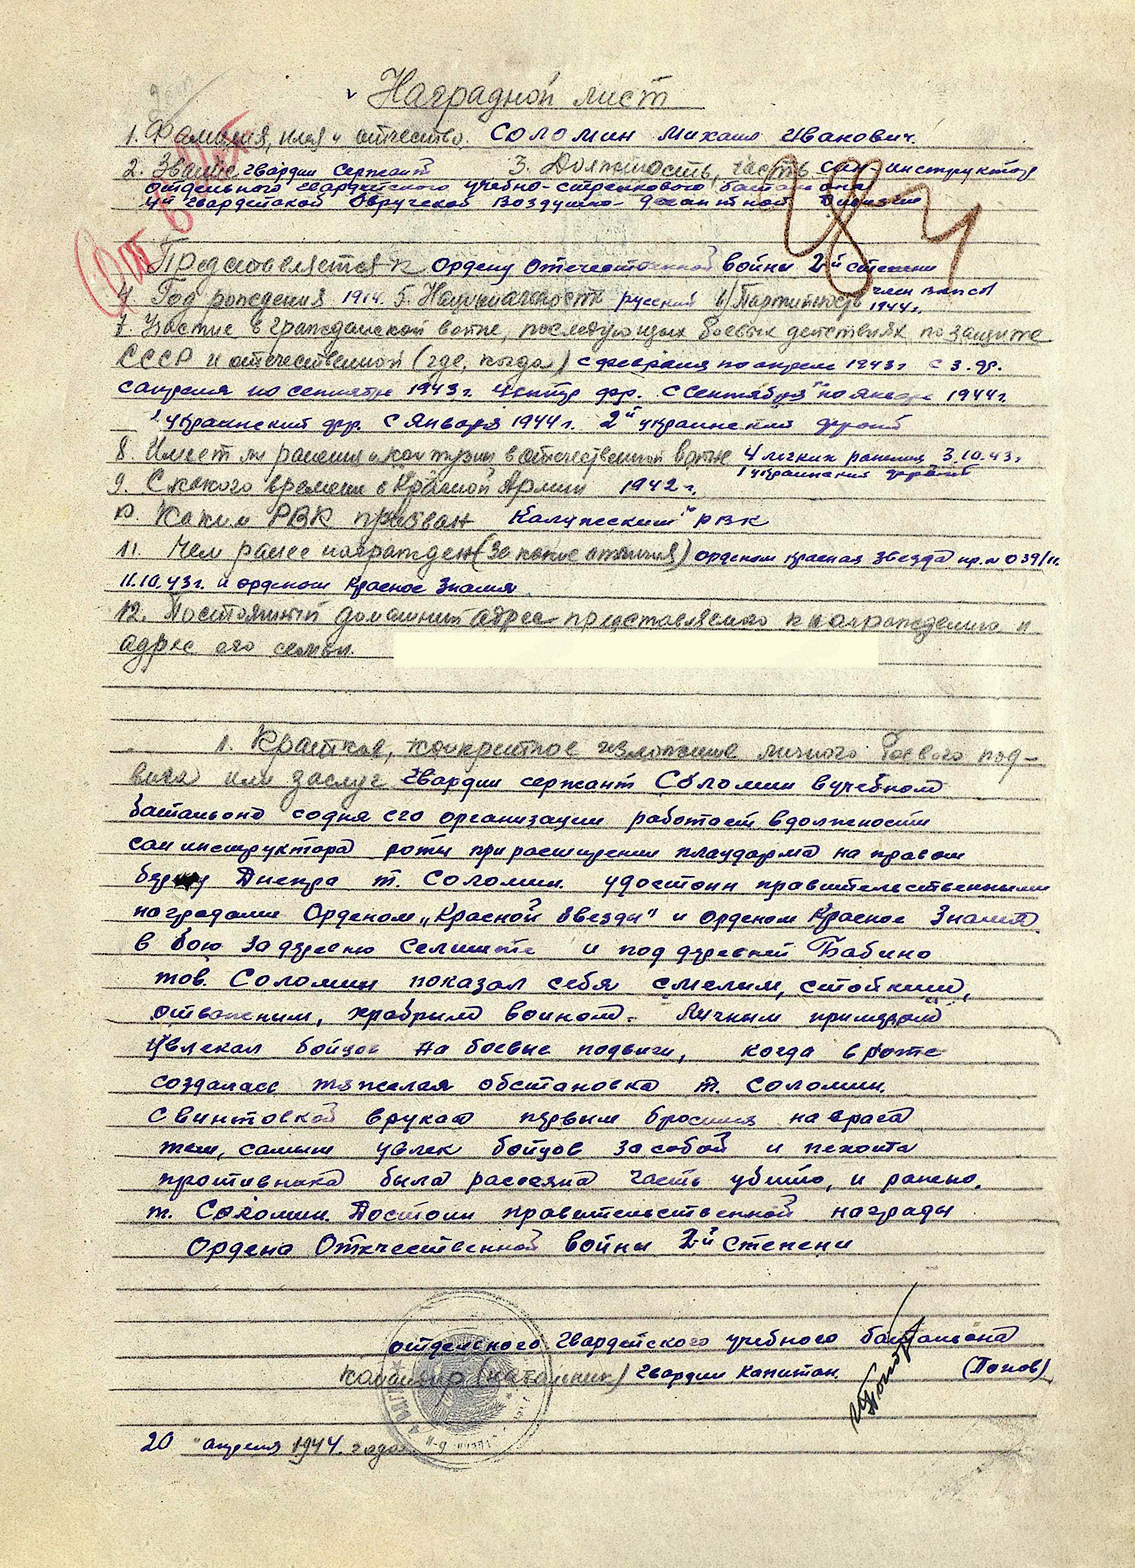 Наградной лист
1. Фамилия, имя и отчество. Соломин Михаил Иванович.
2. Звание гвардии сержант 3. Должность, часть сан инструктор
отдельного гвардейского учебно-стрелкового батальона
4й гвардейской Овручской Воздушно-десантной Дивизии
Представляется к Ордену Отечественной войны 2й степени
4. Год рождения 1914. 5. Национальность русский 6) Партийность член ВКП(б)
1944г.
7. Участие в гражданской войне, последующих боевых действиях по защите
СССР и отечественной (где, когда) с февраля по апрель 1943г С З. фр.
с апреля по сентябрь 1943г. Центр фр. с Сентября по январь 1944г.
1 украинский фр. с января 1944г. 2й украинский фронт
8. Имеет ли ранения и контузии в отечественной войне 4 легких ранения 3.10.43г.
1 украинский фронт
9. С какого времени в Красной Армии 1942г.
10. Каким РВК призван Калужский РВК
11. Чем ранее награжден (за какие отличия) орденом Красная Звезда пр. № 039/н.
11.10.43г. и орденом Красное Знамя
12. Постоянный домашний адрес представляемого к награждению и
адрес его семьи.
1. Краткое, конкретное изложение личного боевого под-
вига или заслуг гвардии сержант Соломин в учебном
батальоне со дня его организации работает в должности
сан инструктора роты при расширении плацдарма на правом
берегу Днепра т. Соломин. удостоин правительственными
наградами Орденом „Красной Звезды" и орденом Красное Знамя
в бою за деревню Селище и под деревней Бабино
тов. Соломин показал себя смелым, стойким,
отважным, храбрым воином. Личным примером
увлекал бойцов на боевые подвиги, когда в роте
создалась тяжелая обстановка т. Соломин.
с винтовкой в руках первым бросился на врага
тем, самым увлек бойцов за собой и пехота
противника была рассеяна часть убито, и ранено.
т. Соломин. Достоин правительственной награды
Ордена Отечественной войны 2й Степени
отдельного гвардейского учебного батальона
Командир (начальник) гвардии капитан. (Попов)
20 апреля 1944. года